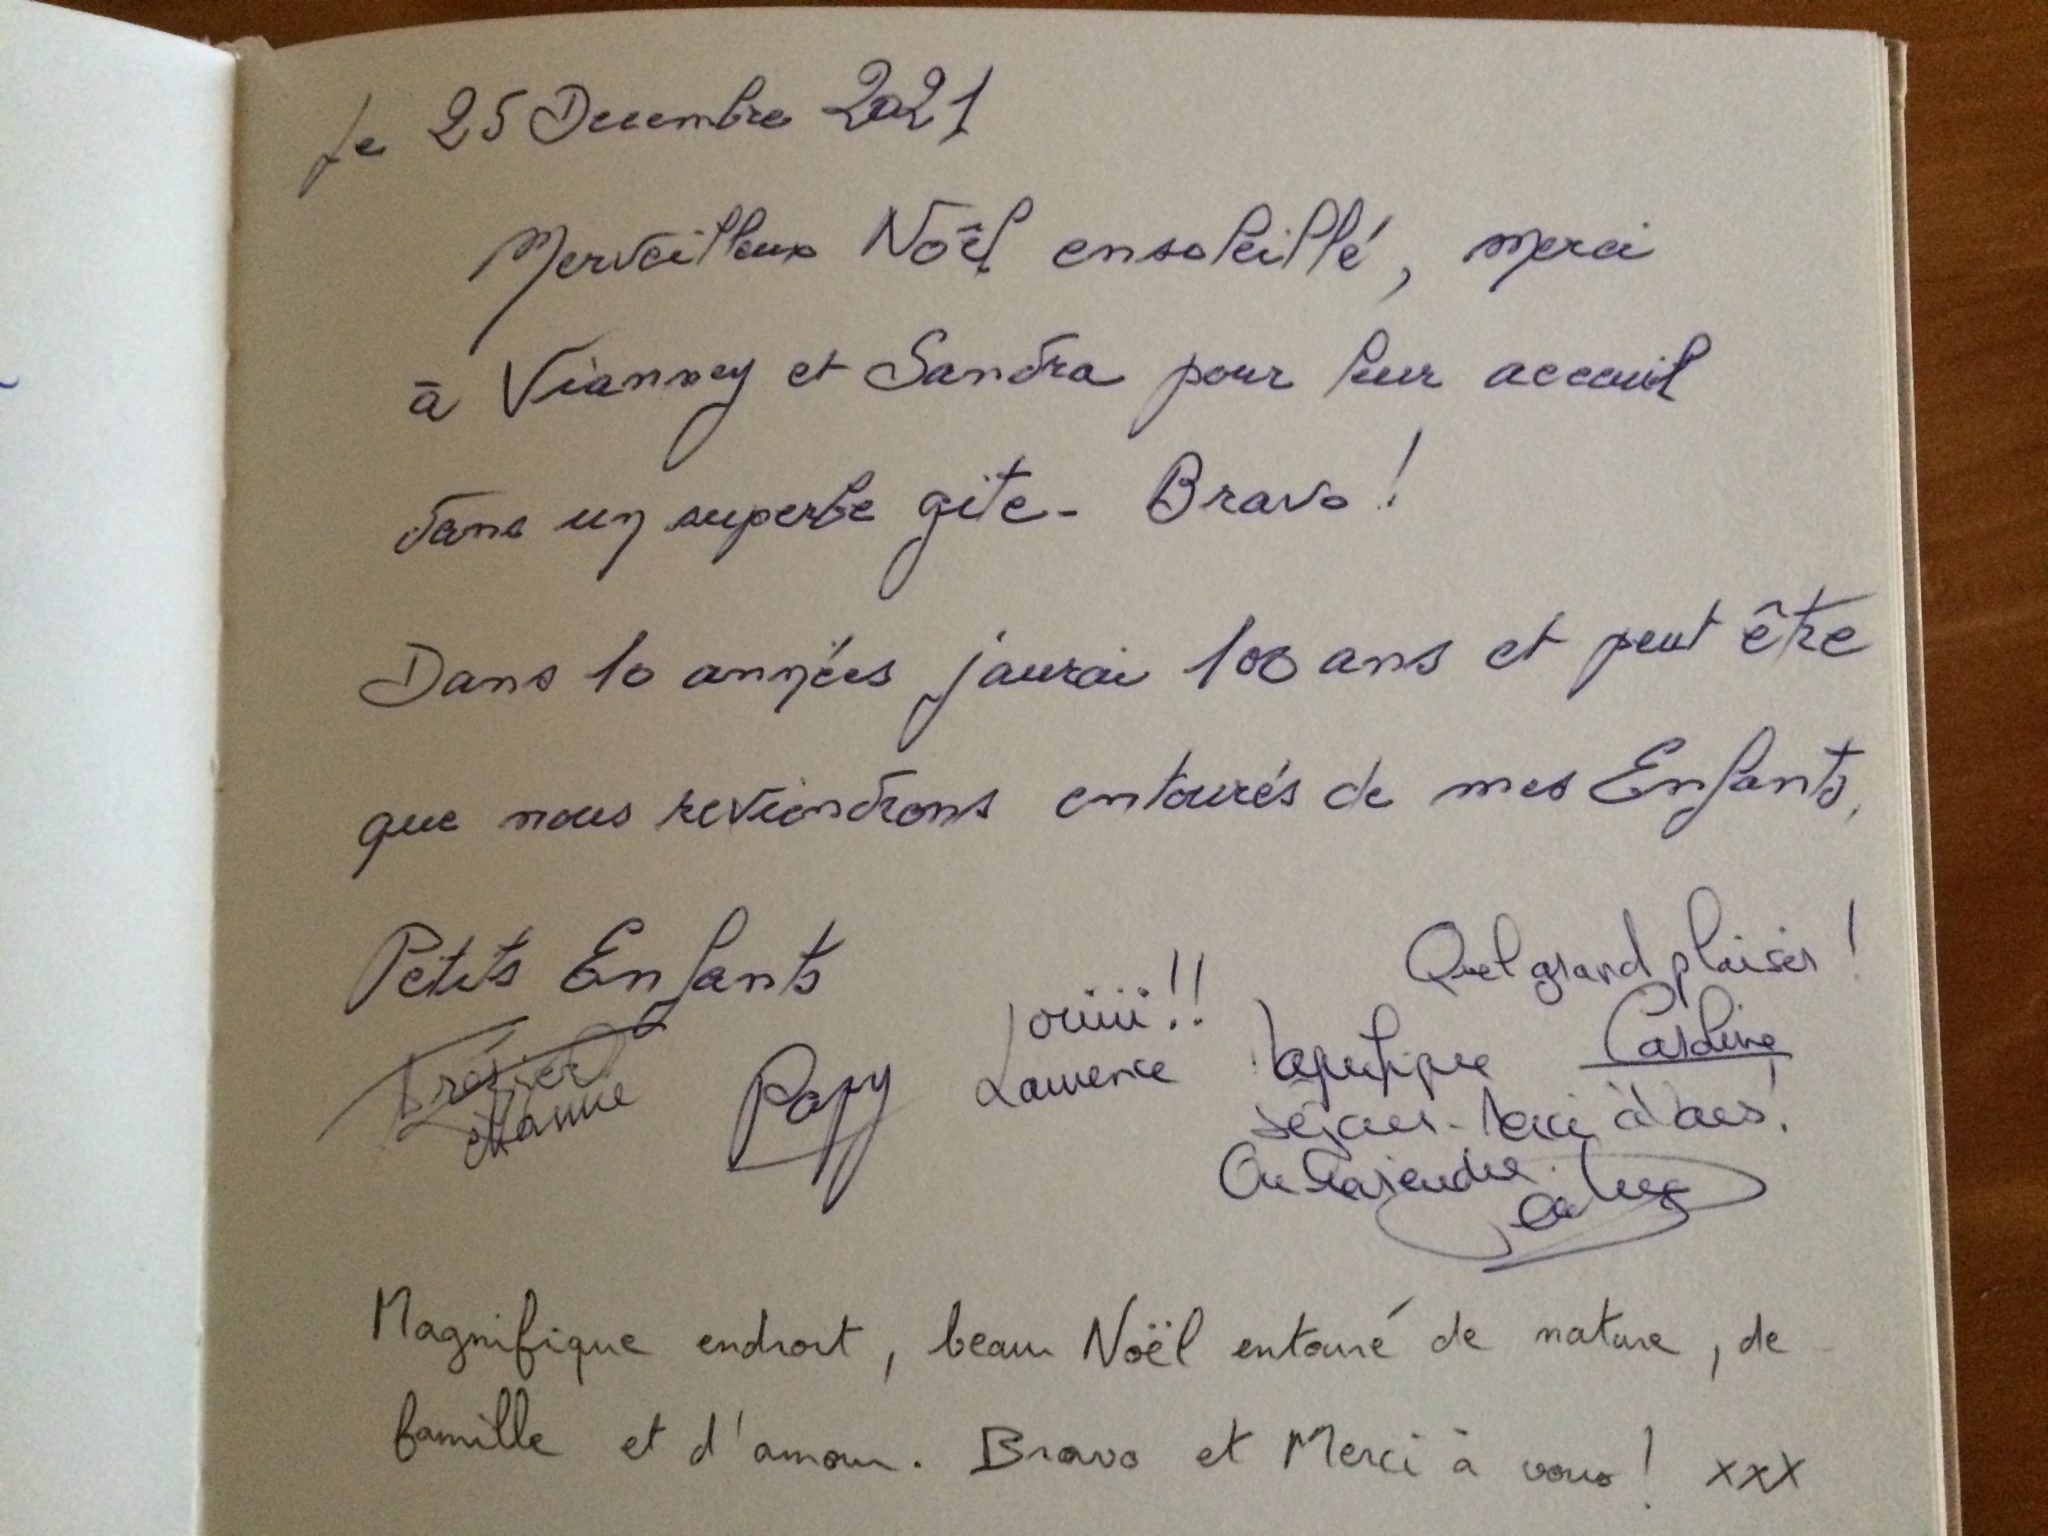 Le 25 Decembre 2021
Merveilleux Noël ensoleillé, merci
à Vianney et Sandra pour leur accueil
dans un superbe gite - Bravo !
Dans 10 années j'aurai 100 ans et peut être
que nous reviendrons entourés de mes Enfants,
Petits Enfants
Papy
ouiiii !!
Laurence
Quel grand plaisir !
Caroline
Magnifique
séjour - Merci à vous !
On
Magnifique endroit, beau Noël entouré de nature, de
famille et d'amour. Bravo et Merci à vous ! xxx